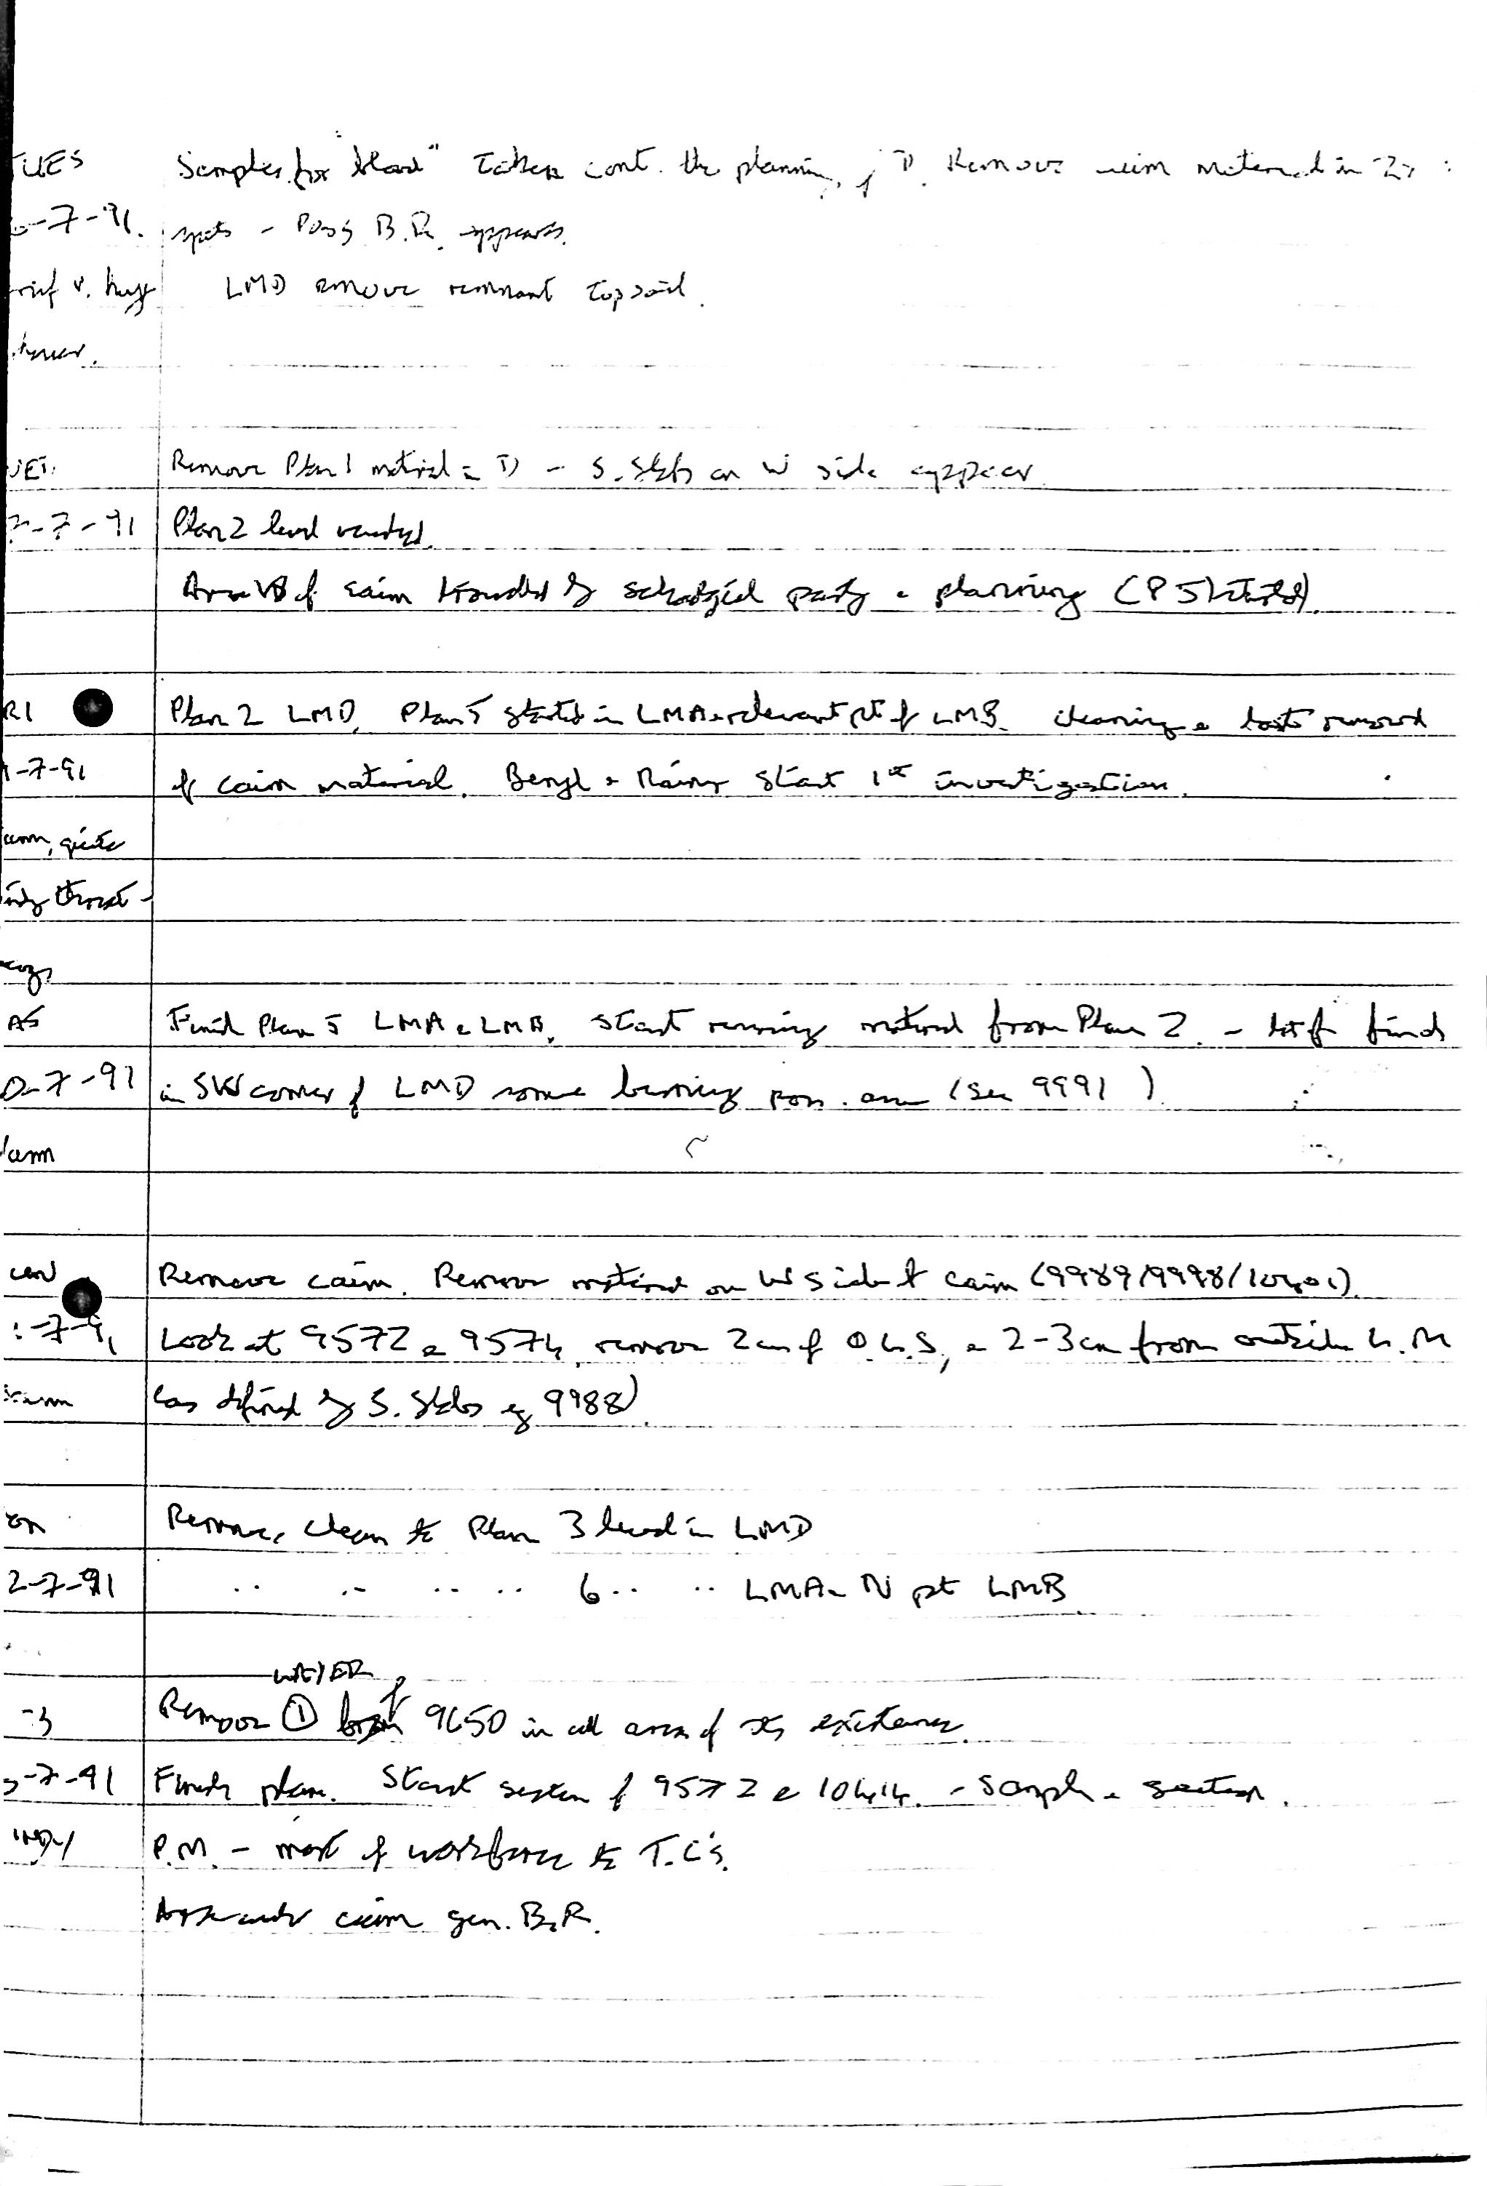 TUES Samples for "blood" taken cont. the planning of D. Remove cairn material in 2
-7-91. spots - Poss B.R. appears.
v. huge LMD remove remnant topsoil.
shower.
WED Remove Plan 1 material in D - S. Slabs on W side appear
-7-91 Plan 2 level reached.
Area of cairn trowelled by party & planning
RI Plan 2 LMD, Plan 5 started in LMA & relevant pt of LMB. cleaning & last removal
-7-91 of cairn material. Beryl & start 1st investigation.
arm, quite
throat -
Finish Plan 5 LMA & LMB. Start removing material from Plan 2. - lot of finds
0-7-91 in SW corner of LMD some burning poss. (See 9991 )
arm
Remove cairn. Remove material on W side of cairn (9989/9998/
-7-91 Look at 9572 & 9574, remove 2cm of O.L.S, & 2-3cm from outside L.M
arm (as defined by S. Slabs eg 9988)
on Remove, clean to Plan 3 level in LMD
2-7-91 .. .. .. .. 6 .. .. LMA & N pt LMB
LAYER
Remove ① of 9650 in all areas of its existence.
-7-91 Finish plan. Start section of 9572 & 10414. - Sample & section.
INDY P.M. - most of workforce to T.C's.
cairn gen. B.R.